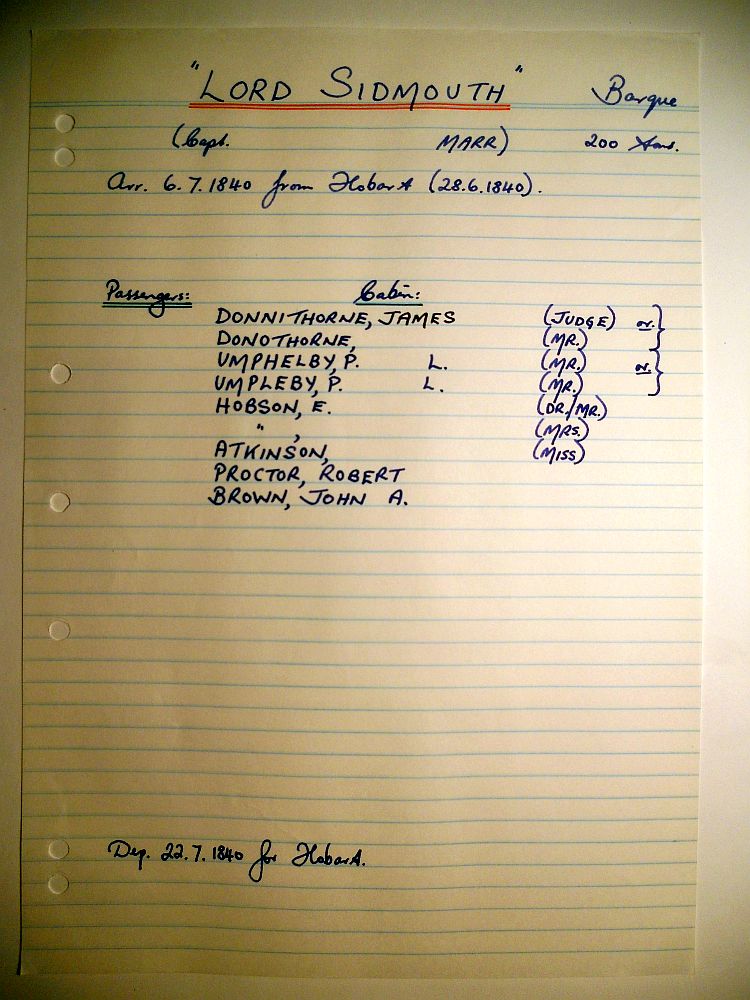 "LORD SIDMOUTH" Barque
(Capt. MARR) 200 tons.
Arr. 6.7.1840 from Hobart (28.6.1840).
Passengers: Cabin:
DONNITHORNE, JAMES (JUDGE) or.
DONOTHORNE, (MR.)
UMPHELBY, P. L. (MR.) or.
UMPLEBY, P. L. (MR.)
HOBSON, E. (DR./MR.)
" , (MRS.)
ATKINSON, (MISS)
PROCTOR, ROBERT
BROWN, JOHN A.
Dep. 22.7.1840 for Hobart.